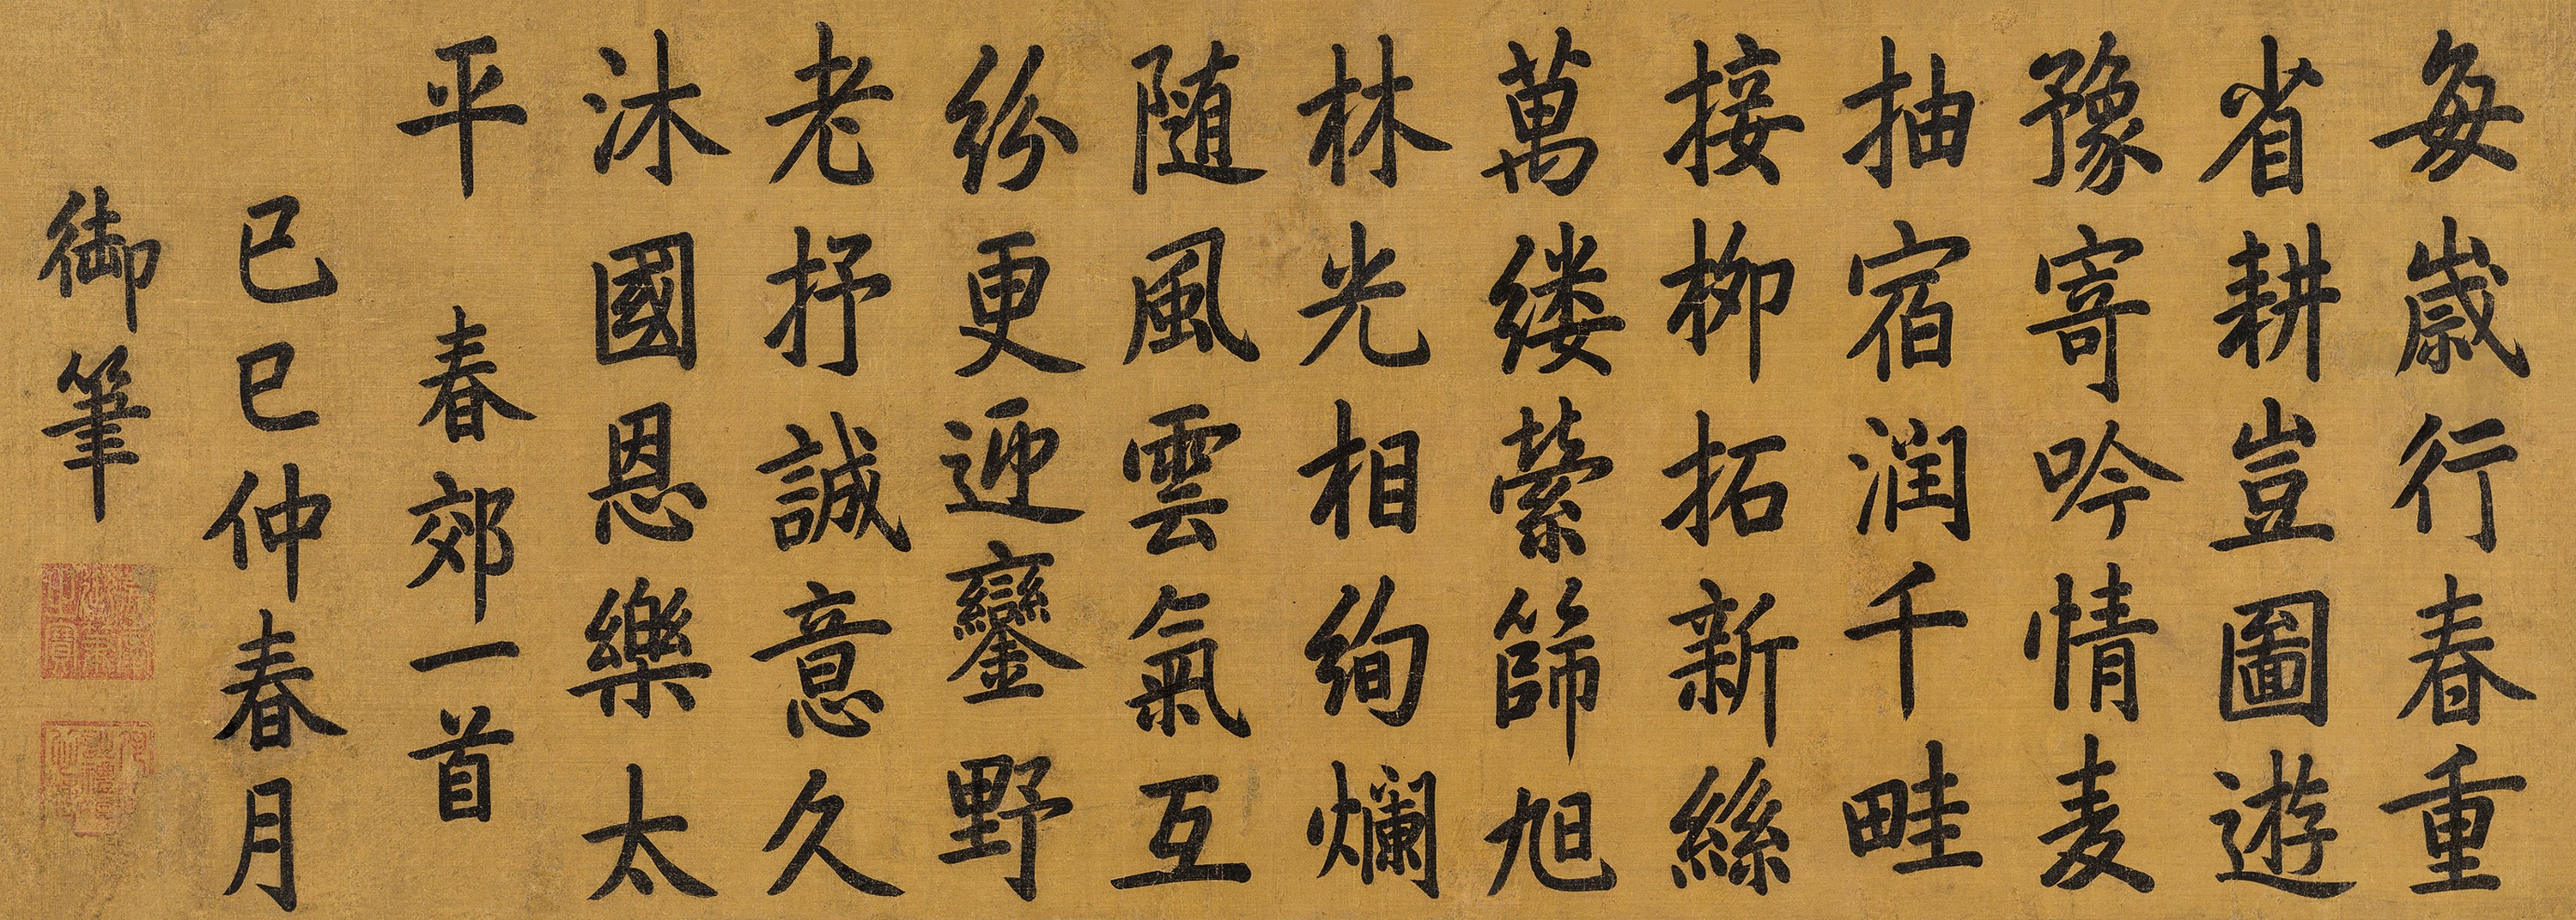 每歲行春重
省耕豈圖遊
豫寄吟情麦
抽宿润千畦
接柳拓新絲
萬缕縈篩旭
林光相絢爛
随風雲氣互
紛更迎鑾野
老抒誠意久
沐國恩樂太
平 春郊一首
己巳仲春月
御筆